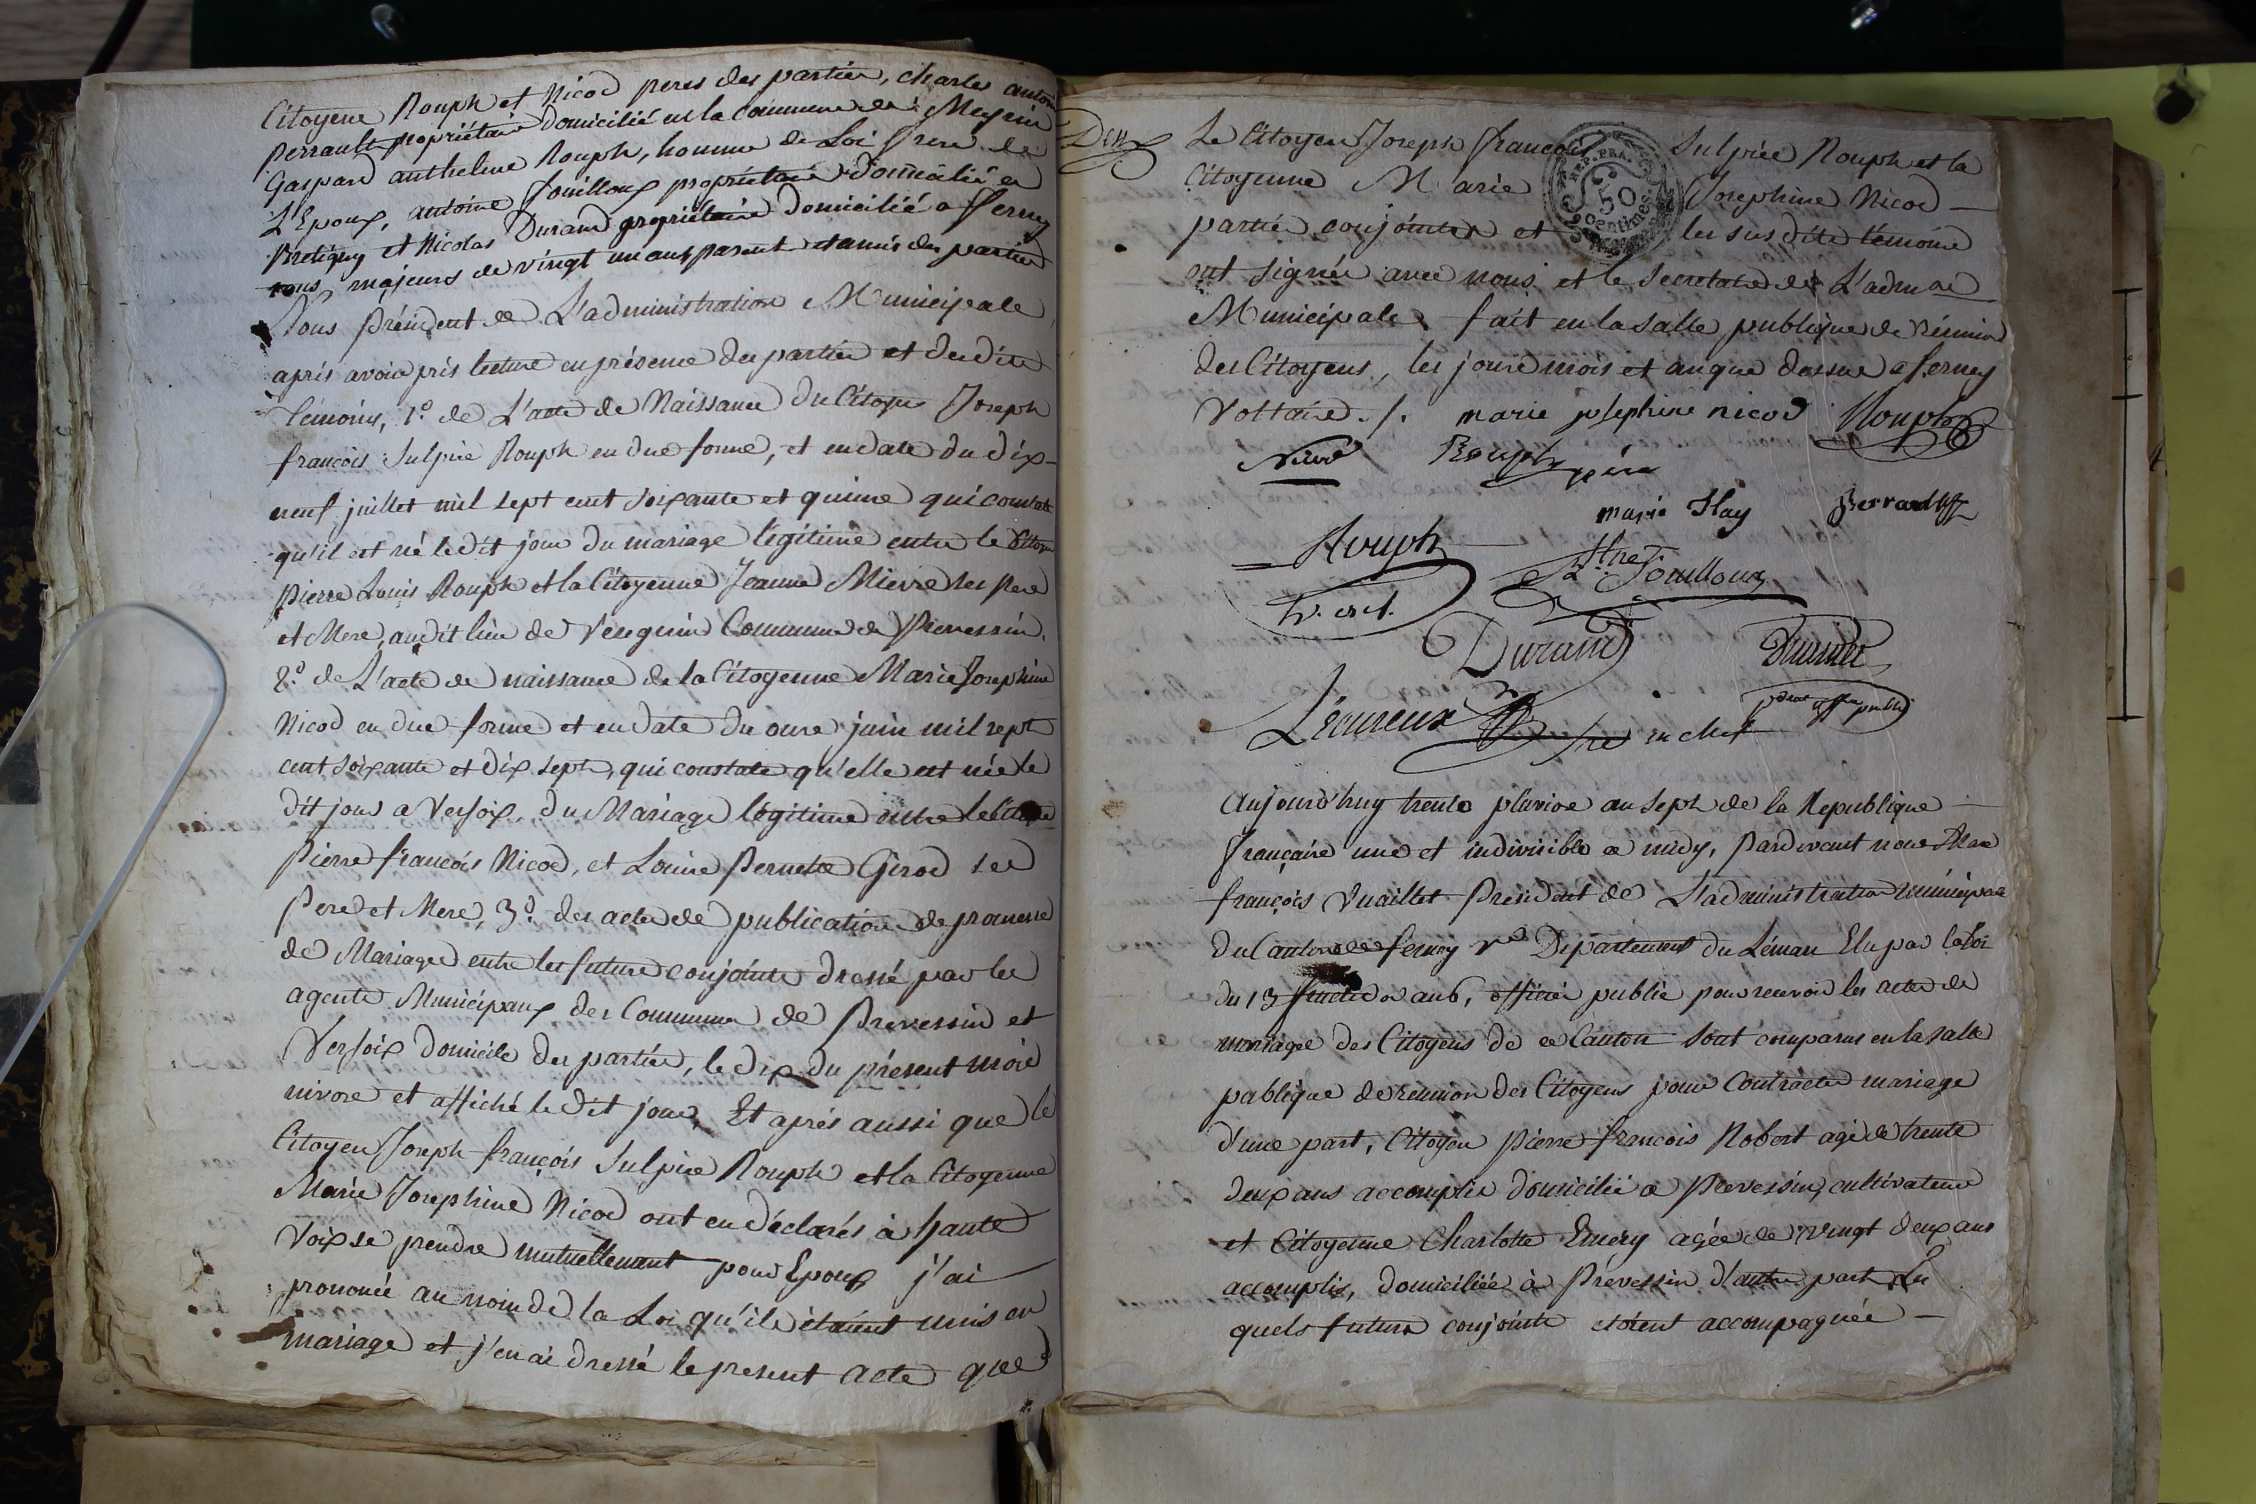 Citoyens Rouph et Nicod peres des parties, charles antoine
perrault propriétaire domicilié en la commune de Meyrin
Gaspard anthelme Rouph, homme de Loi frere de
L'Epoux, antoine Jouilloux propriétaire domicilié a
Bretigny et Nicolas Durand propriétaire domicilié a ferney
tous majeurs de vingt un ans parents et amis des parties
Nous Président de L'administration Municipale
après avoir pris lecture en présence des parties et desdits
témoins, 1.º de L'acte de Naissance du Citoyen Joseph
françois Sulpice Rouph en due forme, et en date du dix
neuf juillet mil sept cent soixante et quinze qui constate
qu'il est né ledit jour du mariage légitime entre le Citoyen
pierre Louis Rouph et la Citoyenne Jeanne Mievre ses pere
et Mere, audit lieu de Vengeron Commune de Prevessin.
2.º de L'acte de naissance de la Citoyenne Marie Josephine
Nicod en due forme et en date du onze juin mil sept
cent soixante et dix sept, qui constate qu'elle est née le
dit jour a Versoix, du Mariage légitime entre le Citoyen
Pierre françois Nicod, et Louise Pernette Girod ses
Pere et Mere, 3.º des actes de publication de promesse
de Mariage entre les futurs conjoints dressé par les
agents Municipaux des Communes de Prevessin et
Versoix domicile des parties, le dix du présent mois
nivose et affiché le dit jour, Et après aussi que le
Citoyen Joseph françois Sulpice Rouph et la Citoyenne
Marie Josephine Nicod ont eu déclarés à haute
voix se prendre mutuellement pour Epoux j'ai
prononcé au nom de la Loi qu'ils étaient unis en
mariage et j'en ai dressé le present acte que
Le Citoyen Joseph francois Sulpice Rouph et la
Citoyenne Marie Josephine Nicod
parties conjointes et les susdits témoins
ont signés avec nous et le Secretaire de L'adm.on
Municipale, fait en la salle publique de réunion
des Citoyens, les jour mois et an que dessus a ferney
Voltaire ./. marie josephine nicod Rouph
Nicod Rouph père
marie Hay Perrault
Rouph
Jouilloux
Durand
Lécureux en chef
REP. FRA.
50
centimes
aujourd'huy trente pluviose an sept de la Republique
françaire une et indivisible a midy, Pardevant nous
françois Vuaillet Président de L'administration municipale
du Canton de ferney Vre Departement du Léman Elu par la loi
du 13 fructidor an 6, officier public pour recevoir les actes de
mariage des Citoyens de ce Canton sont comparus en la salle
publique de réunion des Citoyens pour Contracter mariage
d'une part, Citoyen pierre françois Robert agé de trente
deux ans accomplis domicilié a Prevessin, cultivateur
et Citoyenne Charlotte Emery agée de vingt deux ans
accomplis, domiciliée à Prévessin d'autre part, Les
quels futurs conjoints etoient accompagnés